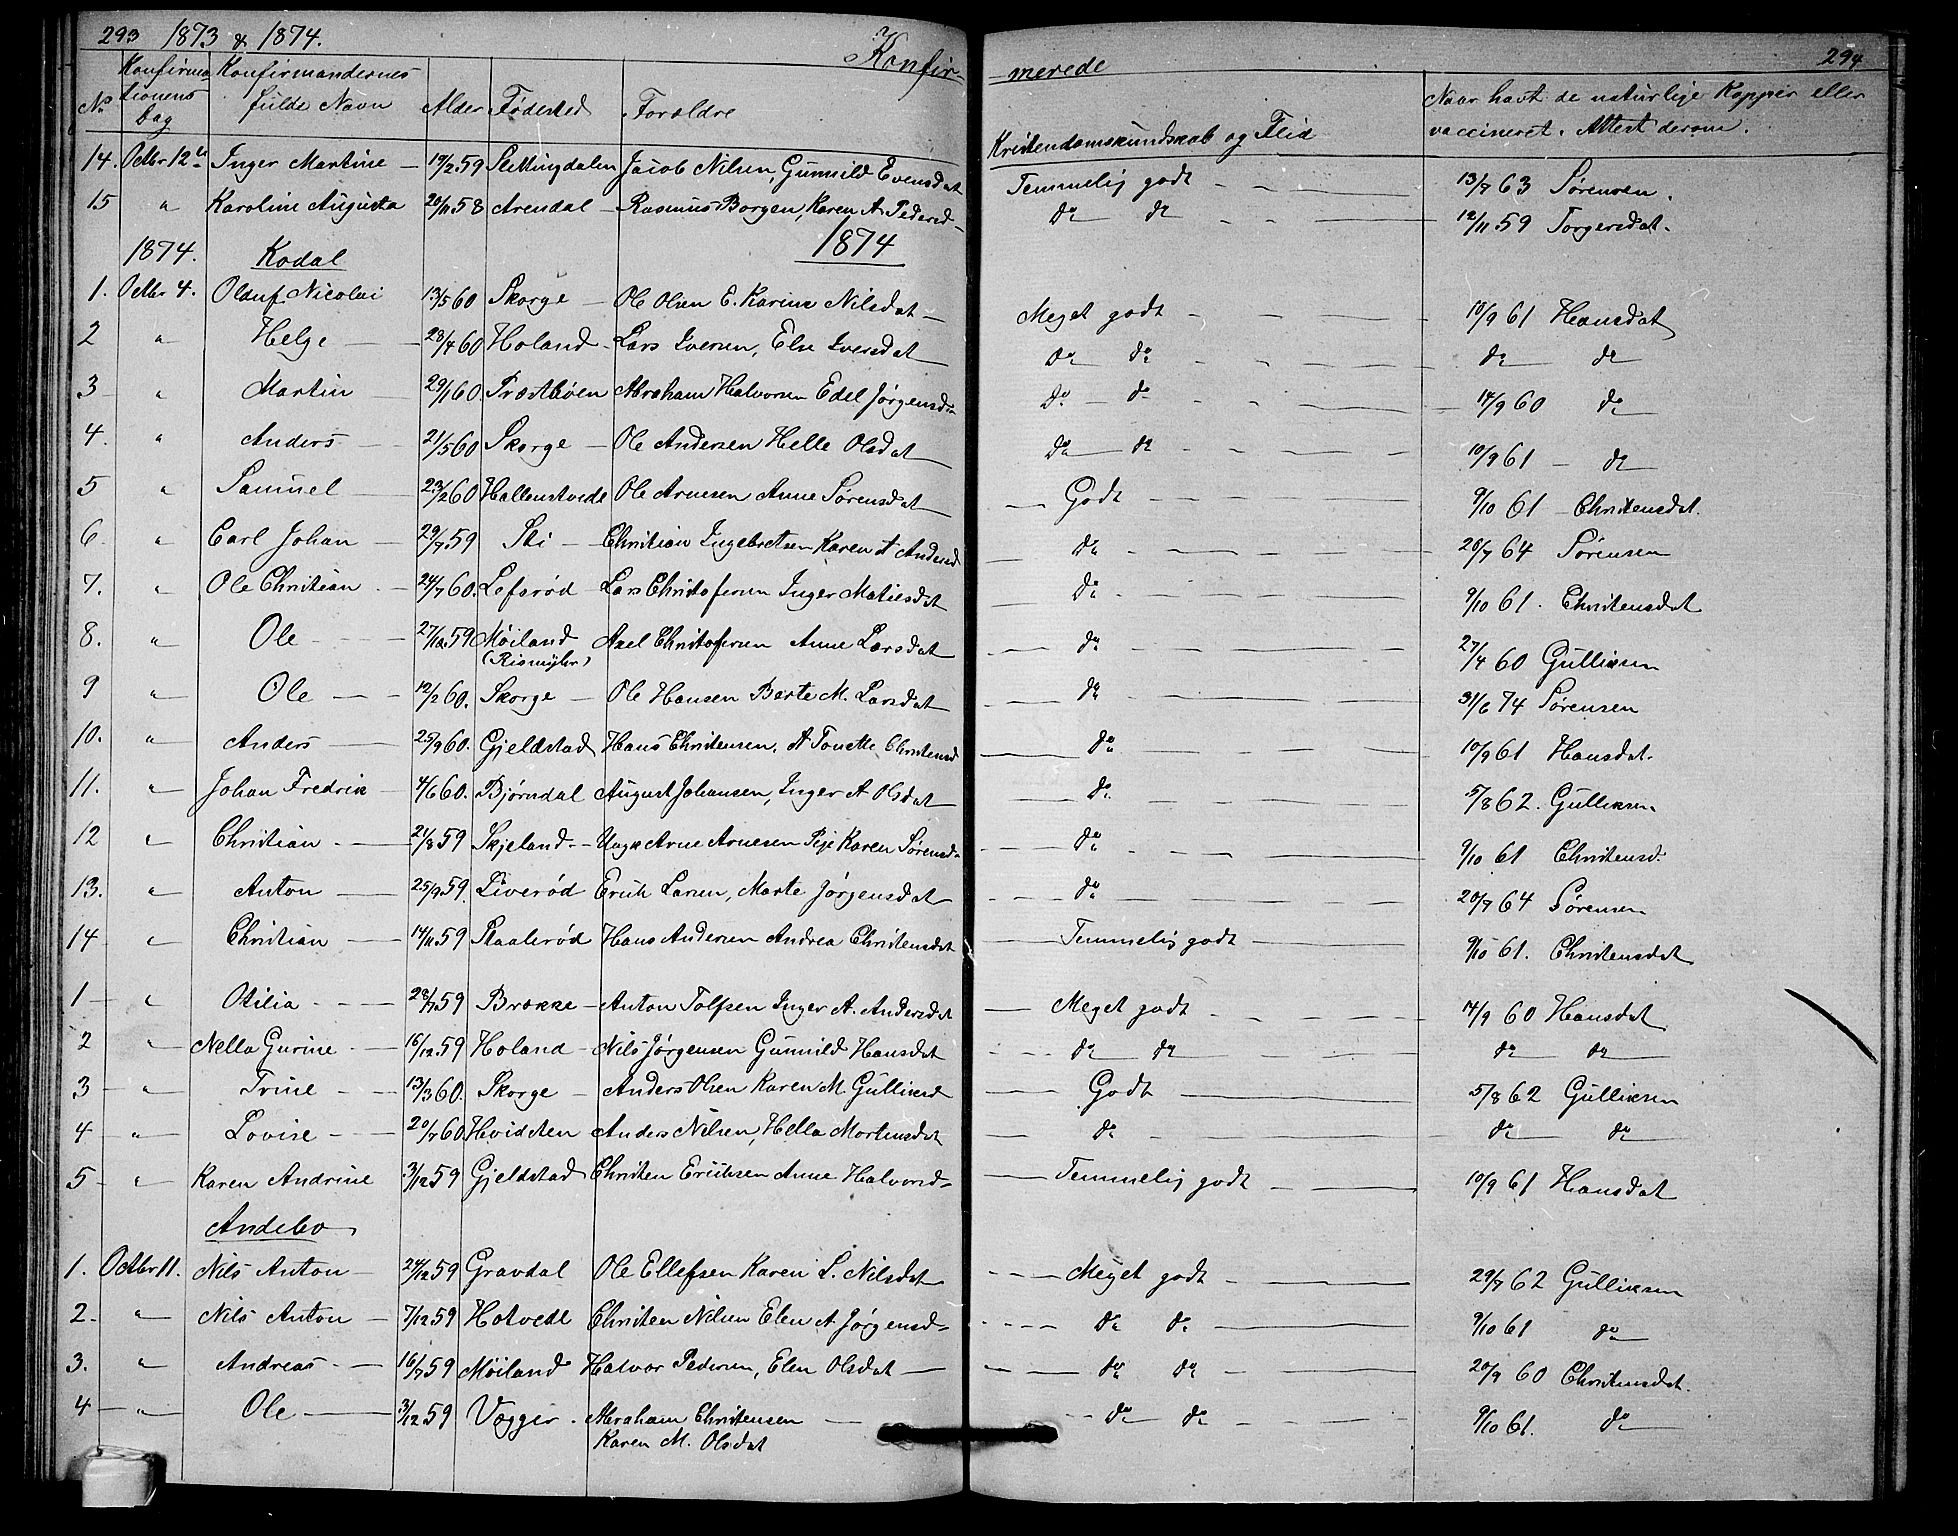 293 1873 & 1874. Konfir-
merede 294
No Konfirmationens Dag Konfirmandernes fulde Navn Alder Fødested Forældre Kristendomskundskab og Flid Naar havt de naturlige Kopper eller vaccineret. Attest derom.
14. Octbr 12te Inger Martine 19/2.59 Slettingdalen Jacob Nilsen, Gunnild Evensdat Temmelig godt 13/7 63 Sørensen.
15 " Karoline Augusta 20/11 58 Arendal Rasmus Borgen, Karen A. Pedersd do do 12/11 59 Torgersdat.
1874. Kodal 1874
1. Octbr 4. Oluf Nicolai 13/5 60 Skorge Ole Olsen E. Karine Nilsdat Meget godt 10/9 61 Hansdat
2 " Helge 23/4 60 Holand Lars Iversen, Else Iversdat do do do do
3 " Martin 29/1 60. Præstbøen Abraham Halvorsen Edel Jørgensd do do 14/9 60 do
4. " Anders 21/5 60 Skorge Ole Andersen Helle Olsdat do do 10/9 61 do
5 " Samuel 23/2 60 Hallenstvedt Ole Arnesen Anne Sørensdat Godt 9/10 61 Christensdat.
6. " Carl Johan 29/7.59 Ski Christian Ingebretsen Karen A Andersd do 26/7 64 Sørensen
7. " Ole Christian 24/7 60. Lefsrød Lars Christofersen Inger Matiesdat do 9/10 61. Christensdat
8. " Ole 27/12.59 Møiland (Rismyhr) Axel Christofersen Anne Larsdat do 27/4 60 Gulliksen
9 " Ole 12/2 60. Skorge Ole Hansen Berte M. Larsdat do 31/6 74 Sørensen
10. " Anders 25/9 60. Gjeldstad Hans Christensen, A Tonette Christensd do 10/9 61 Hansdat.
11. " Johan Fredrik 4/6 60. Bjørndal August Johansen, Inger A Olsdat do 5/8 62. Gulliksen
12 " Christian 21/8 59 Skjeland Ungk Arne Arnesen Pige Karen Sørensd do 9/10 61 Christensd.
13. " Anton 25/9.59 Liverød Erich Larsen, Marte Jørgensdat do 20/7 64 Sørensen
14 " Christian 14/11.59 Staalerød Hans Andersen Andrea Christensdat Temmelig godt 9/10 61. Christensdat
1 " Otilia 28/7.59 Brække Anton Tolfsen Inger A. Andersdat Meget godt 14/9 60 Hansdat
2 " Nella Gurine 16/12.59 Holand Nils Jørgensen Gunnild Hansdat do do do do
3 " Trine 13/3 60. Skorge Anders Olsen Karen M. Gulliksd Godt 5/8 62 Gulliksen
4 " Lovise 20/7 60 Hvidsten Anders Nilsen, Hella Mortensdat do do do
5 " Karen Andrine 3/12 59 Gjeldstad Christen Eriksen Anne Halvorsd Temmelig godt 10/9 61 Hansdat
Andebo
1. Octbr 11. Nils Anton 24/12 59 Gravdal Ole Ellefsen Karen L. Nilsdat Meget godt 29/7 62 Gulliksen
2. " Nils Anton 7/12 59 Hotvedt Christen Nilsen Elen A Jørgensd do do 9/10 61 do
3. " Andreas 16/7 59 Møiland Halvor Pedersen, Elen Olsdat do do 20/9 60 Christensdat.
4 " Ole 3/12 59 Vegger Abraham Christensen do do 9/10 61. do
Karen M. Olsdat